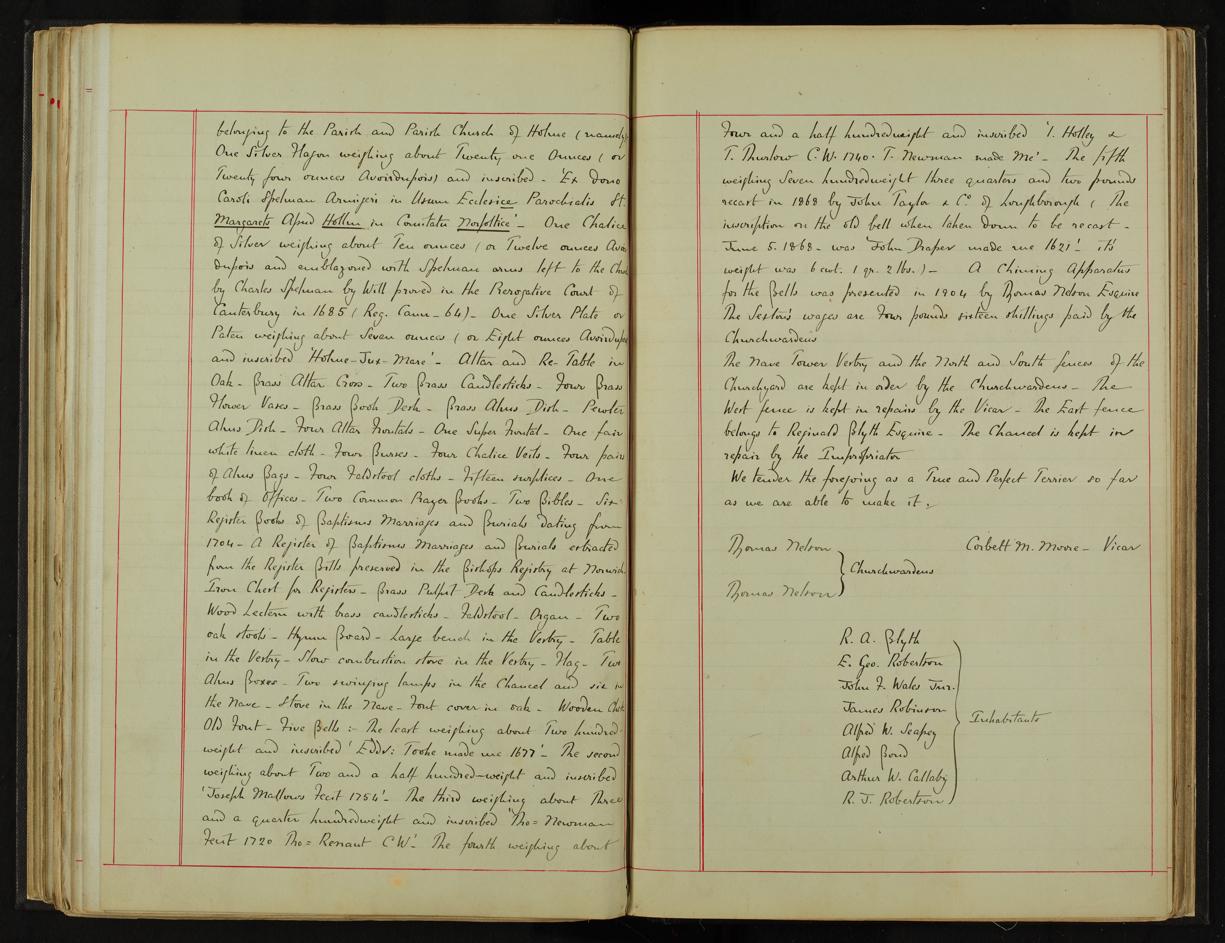 belonging to the Parish and Parish Church of Holme (namely
One Silver Flagon weighing about Twenty one Ounces (or
Twenty four ounces Avoirdupois) and inscribed - 'Ex dono
Caroli Spelman Armigeri in Usum Ecclesice Parochialis St.
Margarets Apud Hollm in Comitatu Norfoltice' - One Chalice
of Silver weighing about Ten ounces (or Twelve ounces Avoir
dupois and emblazoned with Spelman arms left to the
by Charles Spelman by Will proved in the Prerogative Court of
Canterbury in 1685 (Reg. Cann - 64) - One Silver Plate or
Paten weighing about Seven ounces (or Eight ounces Avoirdupois
and inscribed 'Holme-Jux-Mare' - Altar and Re-Table in
Oak - Brass Altar Cross - Two Brass Candlesticks - Four Brass
Flower Vases - Brass Book Desk - Brass Alms Dish - Pewter
Alms Dish - Four Altar Frontals - One Super Frontal - One fair
white linen cloth - Four Burses - Four Chalice Veils - Four pairs
of Alms Bags - Four Faldstool cloths - Fifteen surplices - One
book of Offices - Two Common Prayer Books - Two Bibles - Six
Register Books of Baptisms Marriages and Burials dating from
1704 - A Register of Baptisms Marriages and Burials extracted
from the Register Bills preserved in the Bishops Registry at Norwich
Iron Chest for Registers - Brass Pulpit Desk and Candlesticks -
Wood Lectern with brass candlesticks - Faldstool - Organ - Two
oak stools - Hymn Board - Large bench in the Vestry - Table
in the Vestry - Slow combustion stove in the Vestry - Flag - Two
Alms Boxes - Two swinging lamps in the Chancel and six in
the Nave - Stove in the Nave - Font cover in oak - Wooden
Old Font - Five Bells :- The least weighing about Two hundred-
weight and inscribed 'Edds: Tooke made me 1677' - The second
weighing about Two and a half hundred-weight and inscribed
'Joseph Mallows Fecit 1754' - The third weighing about Three
and a quarter hundredweight and inscribed 'Tho= Newman
Fecit 1720 Tho= Rennant C W.' The fourth weighing about
Four and a half hundredweight and inscribed 'I. Holley &
T. Thurlow C.W. 1740. T. Newman made Me' - The fifth
weighing Seven hundredweight three quarters and two pounds
recast in 1868 by John Taylor & Co. of Loughborough (The
inscription on the old bell when taken down to be recast -
June 5. 1868 - was 'John Draper made me 1621'. it's
weight was 6 cwt. 1 qr. 2 lbs.) - A Chiming Apparatus
for the Bells was presented in 1904 by Thomas Nelson Esquire
The Sexton's wages are Four pounds sixteen shillings paid by the
Churchwardens
The Nave Tower Vestry and the North and South fences of the
Churchyard are kept in order by the Churchwardens - The
West fence is kept in repairs by the Vicar - The East fence
belongs to Reginald Blyth Esquire - The Chancel is kept in
repair by the Impropriator
We tender the foregoing as a True and Perfect Terrier so far
as we are able to make it.
Thomas Nelson
Corbett M. Moore - Vicar
Churchwardens
Thomas Nelson
R. A. Blyth
E. Geo. Robertson
John F. Wales Jnr.
James Robinson
Inhabitants
Alfred W. Seapey
Alfred Bond
Arthur W. Callaby
R. J. Robertson